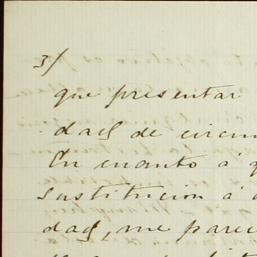 3/
que presentar
dad de circun
En cuanto á q
sustitucion á
dad, me parec